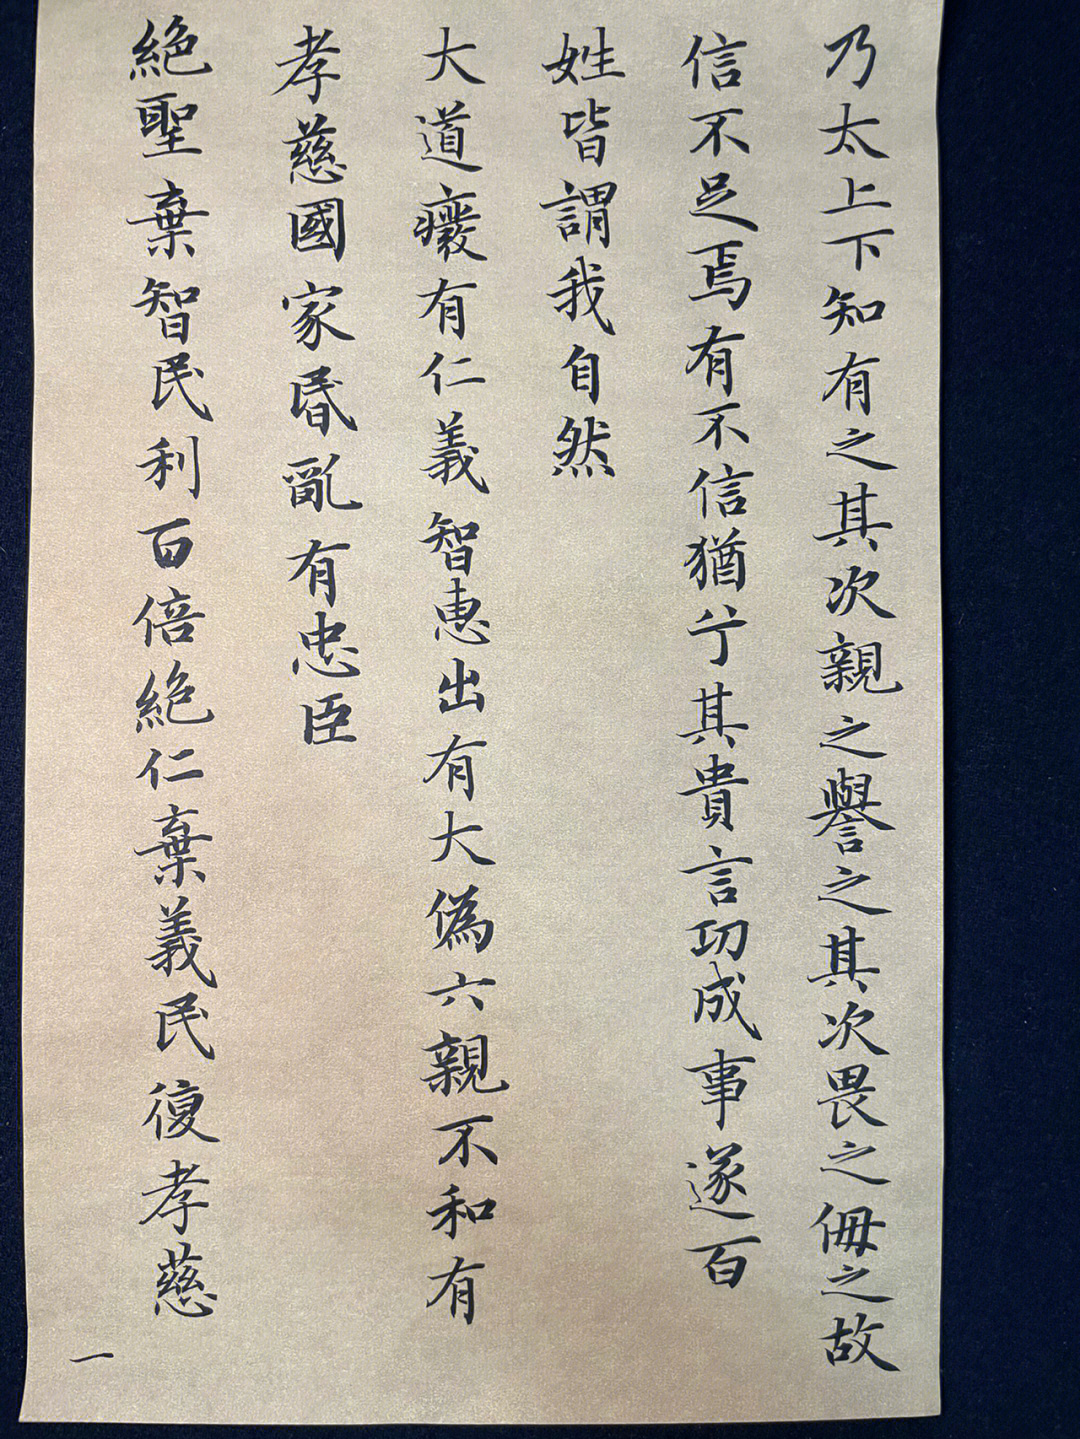 乃太上下知有之其次親之譽之其次畏之侮之故
信不足焉有不信猶兮其貴言功成事遂百
姓皆謂我自然
大道癈有仁義智惠出有大偽六親不和有
孝慈國家昬亂有忠臣
絕聖棄智民利百倍絕仁棄義民復孝慈
一